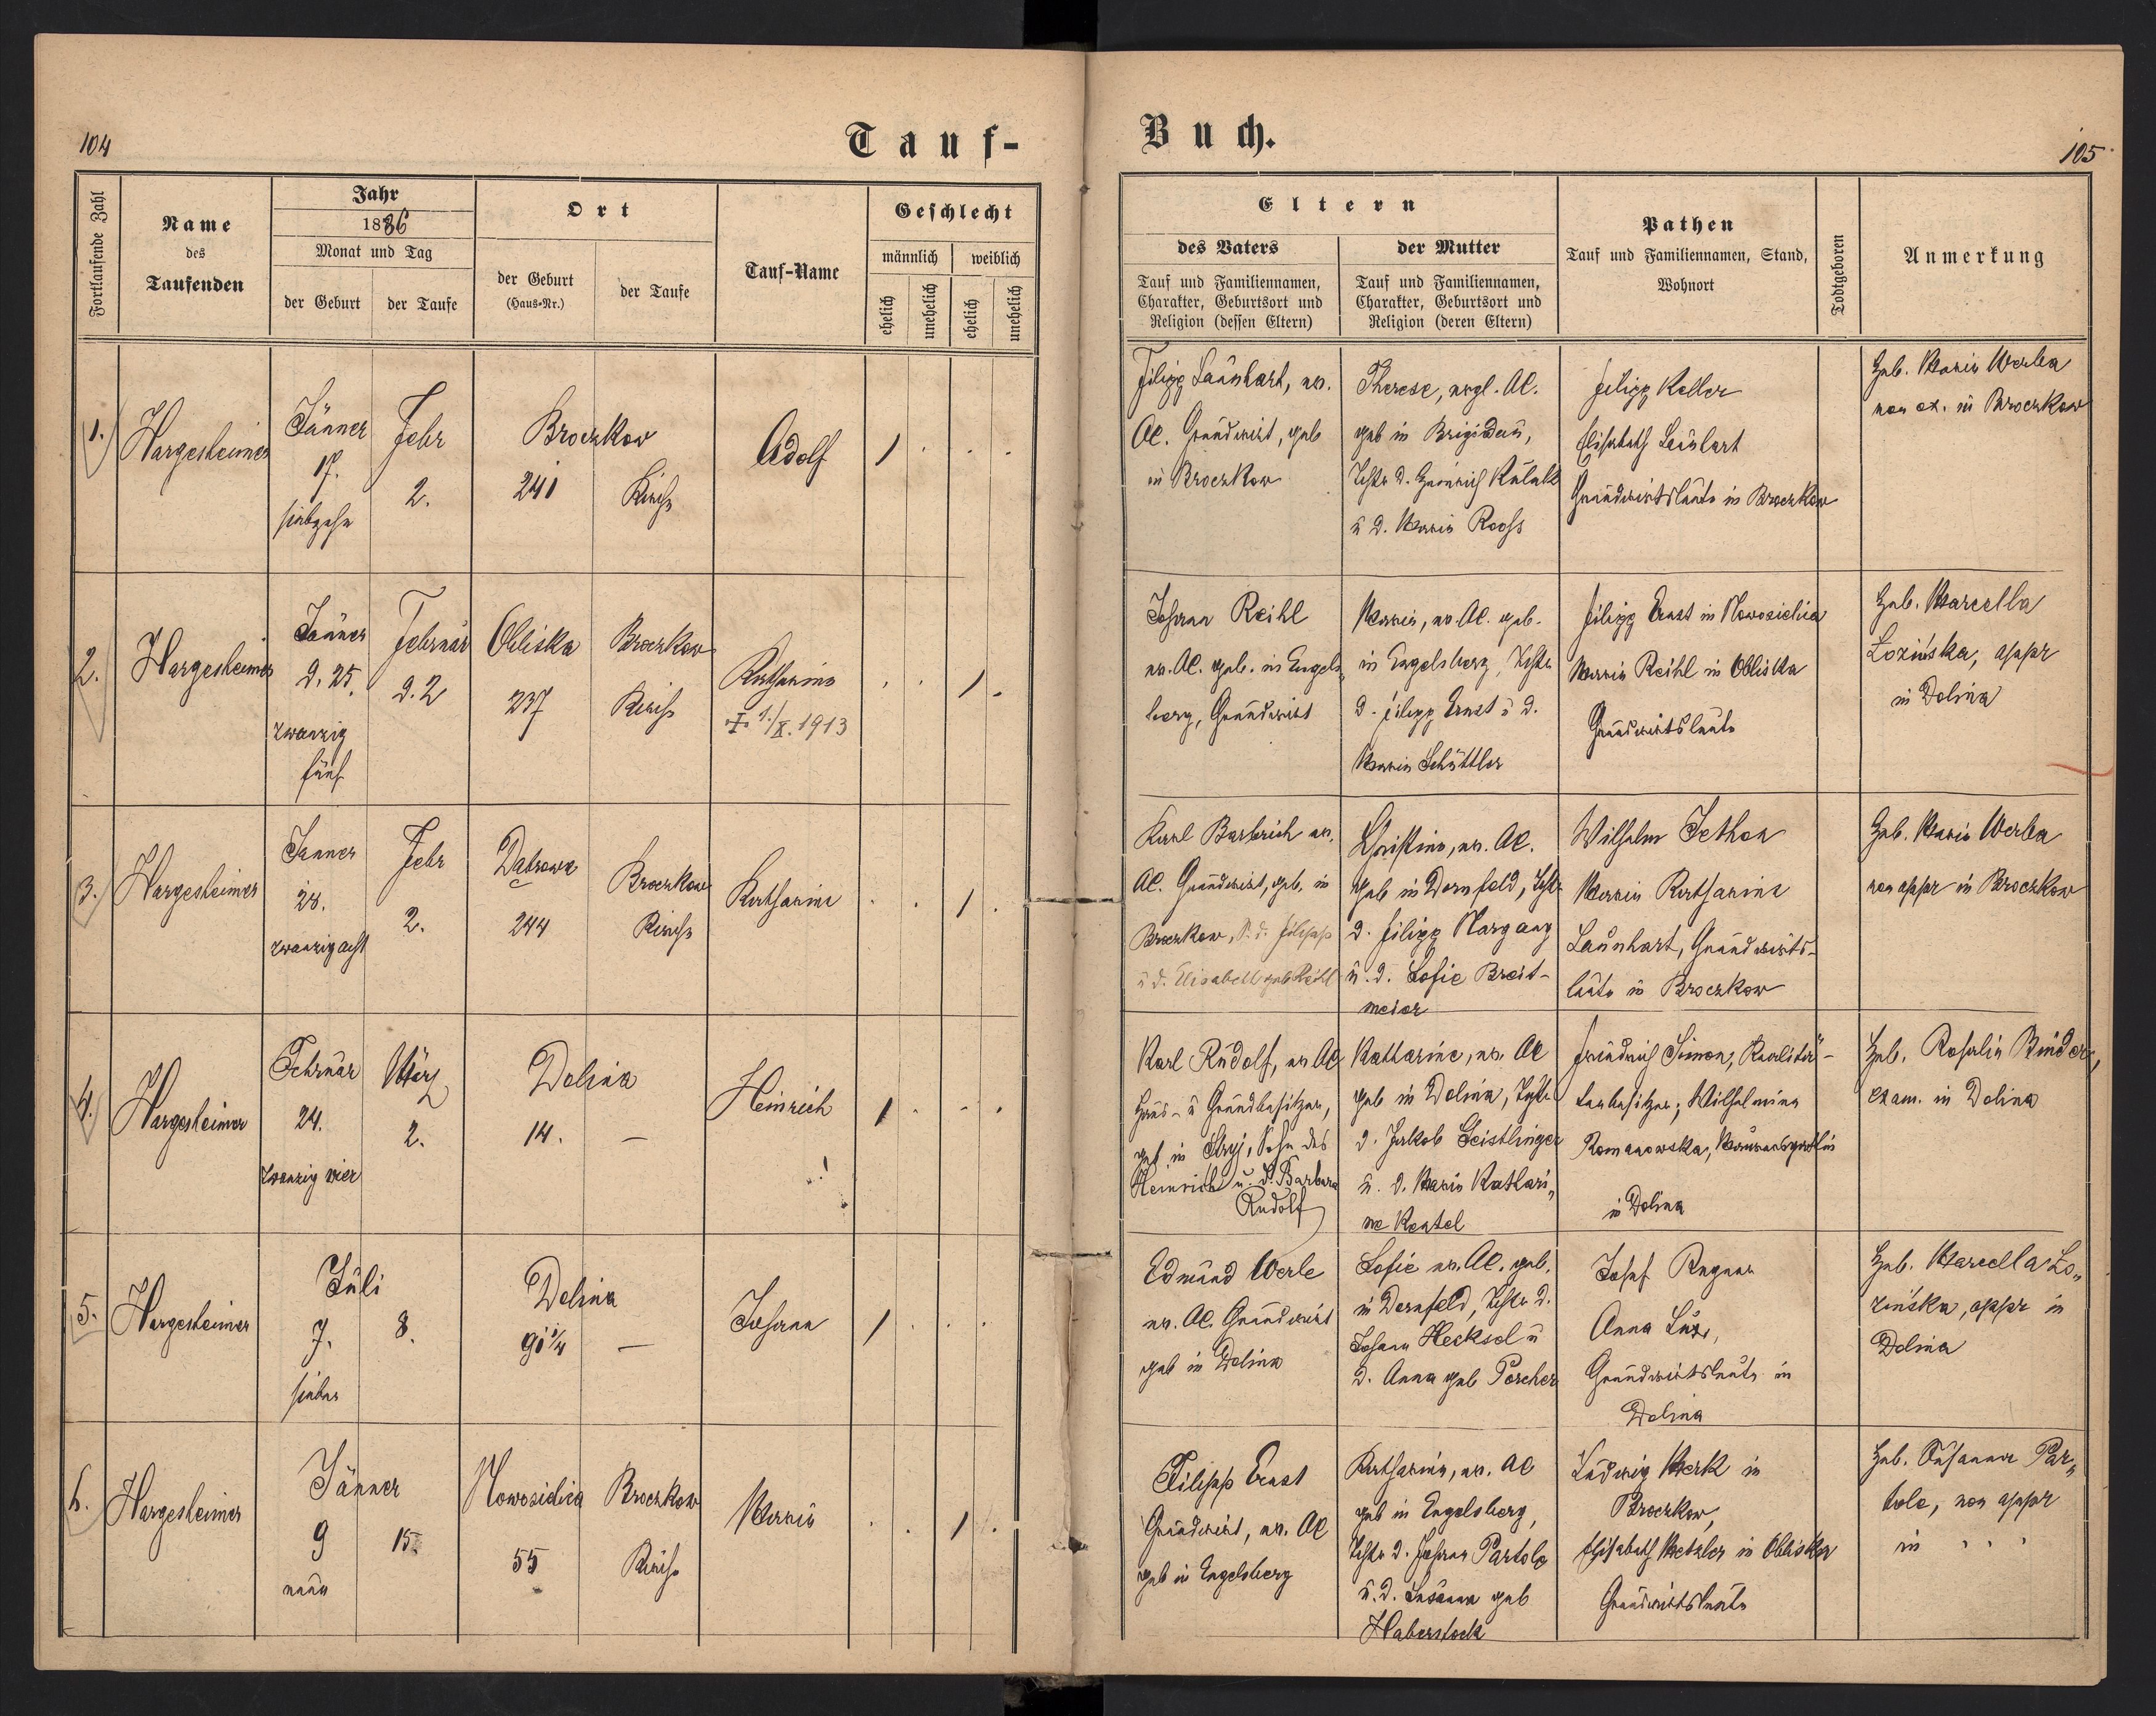 104
Tauf-
Fortlaufende Zahl
Name
des
Taufenden
Jahr
1886
Monat und Tag
der Geburt
der Taufe
Ort
der Geburt
(Haus-Nr.)
der Taufe
Tauf-Name
Geschlecht
männlich
weiblich
ehelich
unehelich
ehelich
unehelich
1.
Hargesheimer
Jänner
17.
siebzehn
Febr
2.
Broczkow
241
Kirche
Adolf
1
2.
Hargesheimer
Jänner
d. 25.
zwanzig
fünf
Februar
d. 2
Obliska
237
Broczkow
Kirche
Katharina
1./X. 1913
1
3.
Hargesheimer
Janner
28.
zwanzig acht
Febr
2.
Dabrowa
244
Broczkow
Kirche
Katharina
1
4.
Hargesheimer
Februar
24.
zwanzig vier
März
2.
Dolina
14. —
Heinrich
1
5.
Hargesheimer
Juli
7.
sieben
8.
Dolina
91¼ —
Johann
1
6.
Hargesheimer
Jänner
9
neun
15.
Nowosielica
55
Broczkow
Kirche
Maria
1
Buch.
105
Eltern
des Vaters
Tauf und Familiennamen,
Charakter, Geburtsort und
Religion (dessen Eltern)
der Mutter
Tauf und Familiennamen,
Charakter, Geburtsort und
Religion (deren Eltern)
Pathen
Tauf und Familiennamen, Stand,
Wohnort
Todtgeboren
Anmerkung
Filipp Launhart, ev.
AC. Grundwirt, geb
in Broczkow
Therese, evgl. AC.
geb in Brigidau,
Tchtr d. Heinrich Kulak
u d. Maria Rooss
Filipp Keller
Elisabeth Launhart
Grundwirtsleute in Broczkow
Heb. Maria Werba
non ex. in Broczkow
Johann Reihl
ev. AC. geb. in Engels
berg, Grundwirt
Maria, ev. AC. geb.
in Engelsberg, Tchtr
d. Filipp Ernst u d.
Maria Schüttler
Filipp Ernst in Nowosielica
Maria Reihl in Obliska
Grundwirtsleute
Heb. Marcella
Lozińska, appr
in Dolina
Karl Barbrich ev.
AC. Grundwirt, geb. in
Broczkow, S. d. Filipp
u d. Elisabeth geb Reihl
Christina, ev. AC.
geb in Dornfeld, Tchtr
d. Filipp Margang
u. d. Sofie Breit-
meier
Wilhelm Jethon
Maria Katharina
Launhart, Grundwirts-
leute in Broczkow
Heb. Maria Werba
non appr in Broczkow
Karl Rudolf, ev AC
Haus- u Grundbesitzer,
geb in Stryj, Sohn des
Heinrich u. d. Barbara
Rudolf
Katharine, ev. AC
geb in Dolina, Tchtr
d. Jakob Geistlinger
u. d. Maria Kathari„
ne Kentel
Friedrich Simon, Realitä-
tenbesitzer; Wilhelmina
Romanowska,
in Dolina
Heb. Rosalia Binder,
exam. in Dolina
Edmund Werle
ev. AC. Grundwirt
geb in Dolina
Sofie ev. AC. geb.
in Dornfeld, Tchtr d.
Johann Hecksel u
d. Anna geb Porcher
Josef Regner
Anna Lux,
Grundwirtsleute in
Dolina
Heb. Marcella Lo„
zińska, appr in
Dolina
Filipp Ernst
Grundwirt, ev. AC
geb in Engelsberg
Katharina, ev. AC
geb in Engelsberg,
Tchtr d. Johann Partole
u. d. Susanna geb
Haberstock
Ludwig Merk in
Broczkow,
Elisabeth Metzler in Obliska
Grundwirtsleute
Heb. Susanna Par„
tole, non appr
in " " "